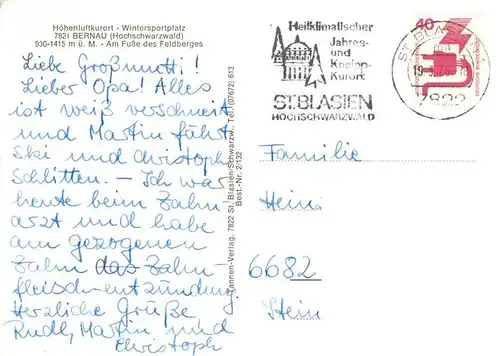 Höhenluftkurort - Wintersportplatz
7821 BERNAU (Hochschwarzwald)
930-1415 m ü. M. - Am Fuße des Feldberges
Liebe Großmutti!
Lieber Opa! Alles
ist weiß verschneit
und Martin fährt
Ski und Christoph
Schlitten. - Ich war
heute beim Zahn-
arzt und habe
am gezogenen
Zahn das Zahn-
fleischentzündung.
Herzliche Grüße,
Rudl, Martin und
Christoph
Tannen-Verlag, 7822 St. Blasien/Schwarzw., Tel. (07672) 613
Best.-Nr. 2/132
Heilklimatischer
Jahres-
und
Kneipp-
Kurort
ST.BLASIEN
HOCHSCHWARZWALD
40
ST. BLASIEN
7822
Familie
Hein
6682
Stein